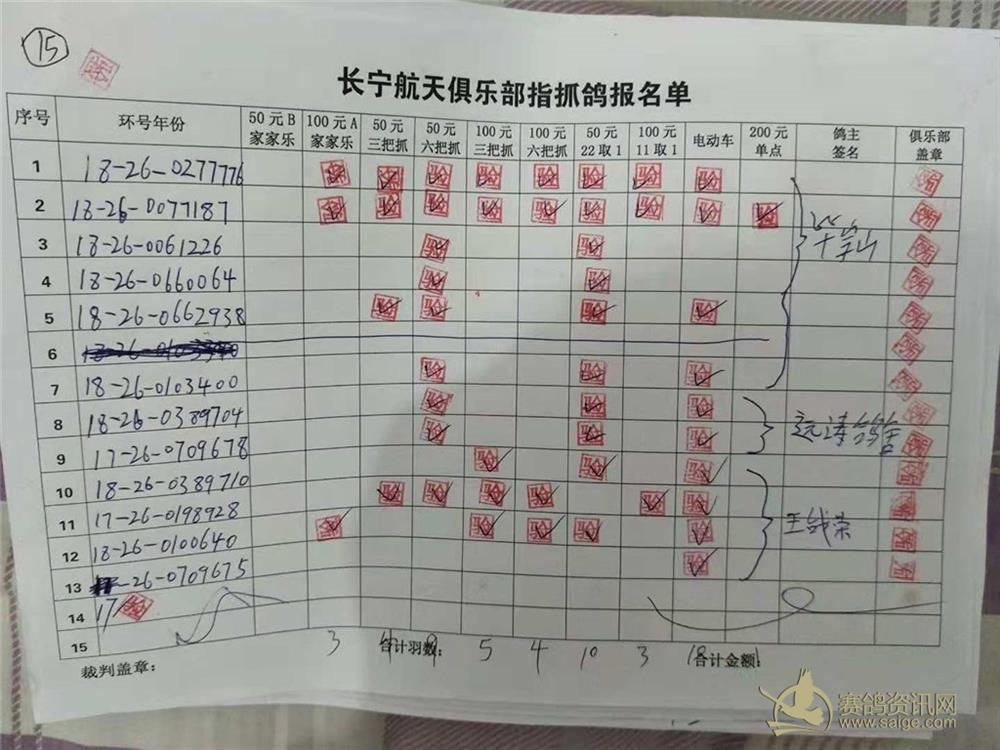 15
长宁航天俱乐部指抓鸽报名单
序号 环号年份 50元B家家乐 100元A家家乐 50元三把抓 50元六把抓 100元三把抓 100元六把抓 50元22取1 100元11取1 电动车 200元单点 鸽主签名 俱乐部盖章
1 18-26-0277776 验 验 验 验 验 验 验 验
2 18-26-0077187 验 验 验 验 验 验 验 验 验
3 18-26-0061226 验 验
4 18-26-0660064 验 验
5 18-26-0662938 验 验 验 验
6
7 18-26-0103400 验 验 验
8 18-26-0389704 验 验 验
9 17-26-0709678 验 验 验
10 18-26-0389710 验 验 验
11 17-26-0198928 验 验 验 验 验 验
12 18-26-0100640 验 验 验 验 验
13 -26-0709675 验
14 17
15
3 4 9 5 4 10 3
裁判盖章: 合计羽数: 合计金额:
赛鸽资讯网
www.saige.com